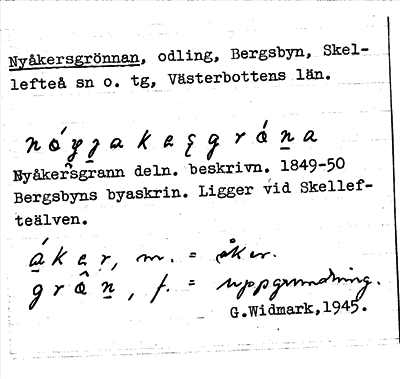 Nyåkersgrönnan, odling, Bergsbyn, Skel-
lefteå sn o. tg, Västerbottens län.
Nyåkersgrann deln. beskrivn. 1849-50
Bergsbyns byaskrin. Ligger vid Skellef-
teälven.
áker, m. = åker.
grân, f. = uppgrundning.
G.Widmark,1945.